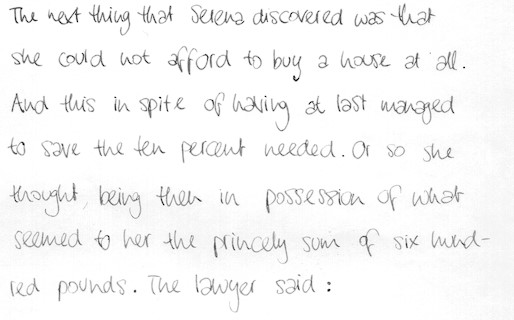 The next thing that Selena discovered was that
she could not afford to buy a house at all.
And this in spite of having at last managed
to save the ten percent needed. Or so she
thought, being then in possession of what
seemed to her the princely sum of six hund-
red pounds. The lawyer said :